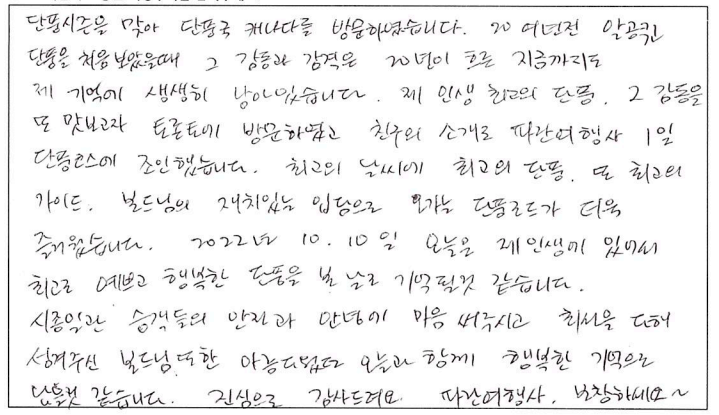 단풍시즌을 맞아 단풍국 캐나다를 방문하였습니다. 20여년전 알공퀸
단풍을 처음 보았을때 그 감동과 감격은 20년이 흐른 지금까지도
제 기억에 생생히 남아있습니다. 제 인생 최고의 단풍, 그 감동을
또 맛보고자 토론토에 방문하였고 친구의 소개로 파란여행사 1일
단풍코스에 조인했습니다. 최고의 날씨에 최고의 단풍, 또 최고의
가이드. 빌드님의 재치있는 입담으로 오가는 단풍로드가 더욱
즐거웠습니다. 2022년 10.10일 오늘은 제 인생에 있어서
최고로 예쁘고 행복한 단풍을 본 날로 기억될것 같습니다.
시종일관 승객들의 안전과 안녕에 마음 써주시고 최선을 다해
섬겨주신 빌드님 또한 아름다웠던 오늘과 함께 행복한 기억으로
남을것 같습니다. 진심으로 감사드려요 파란여행사. 번창하세요~